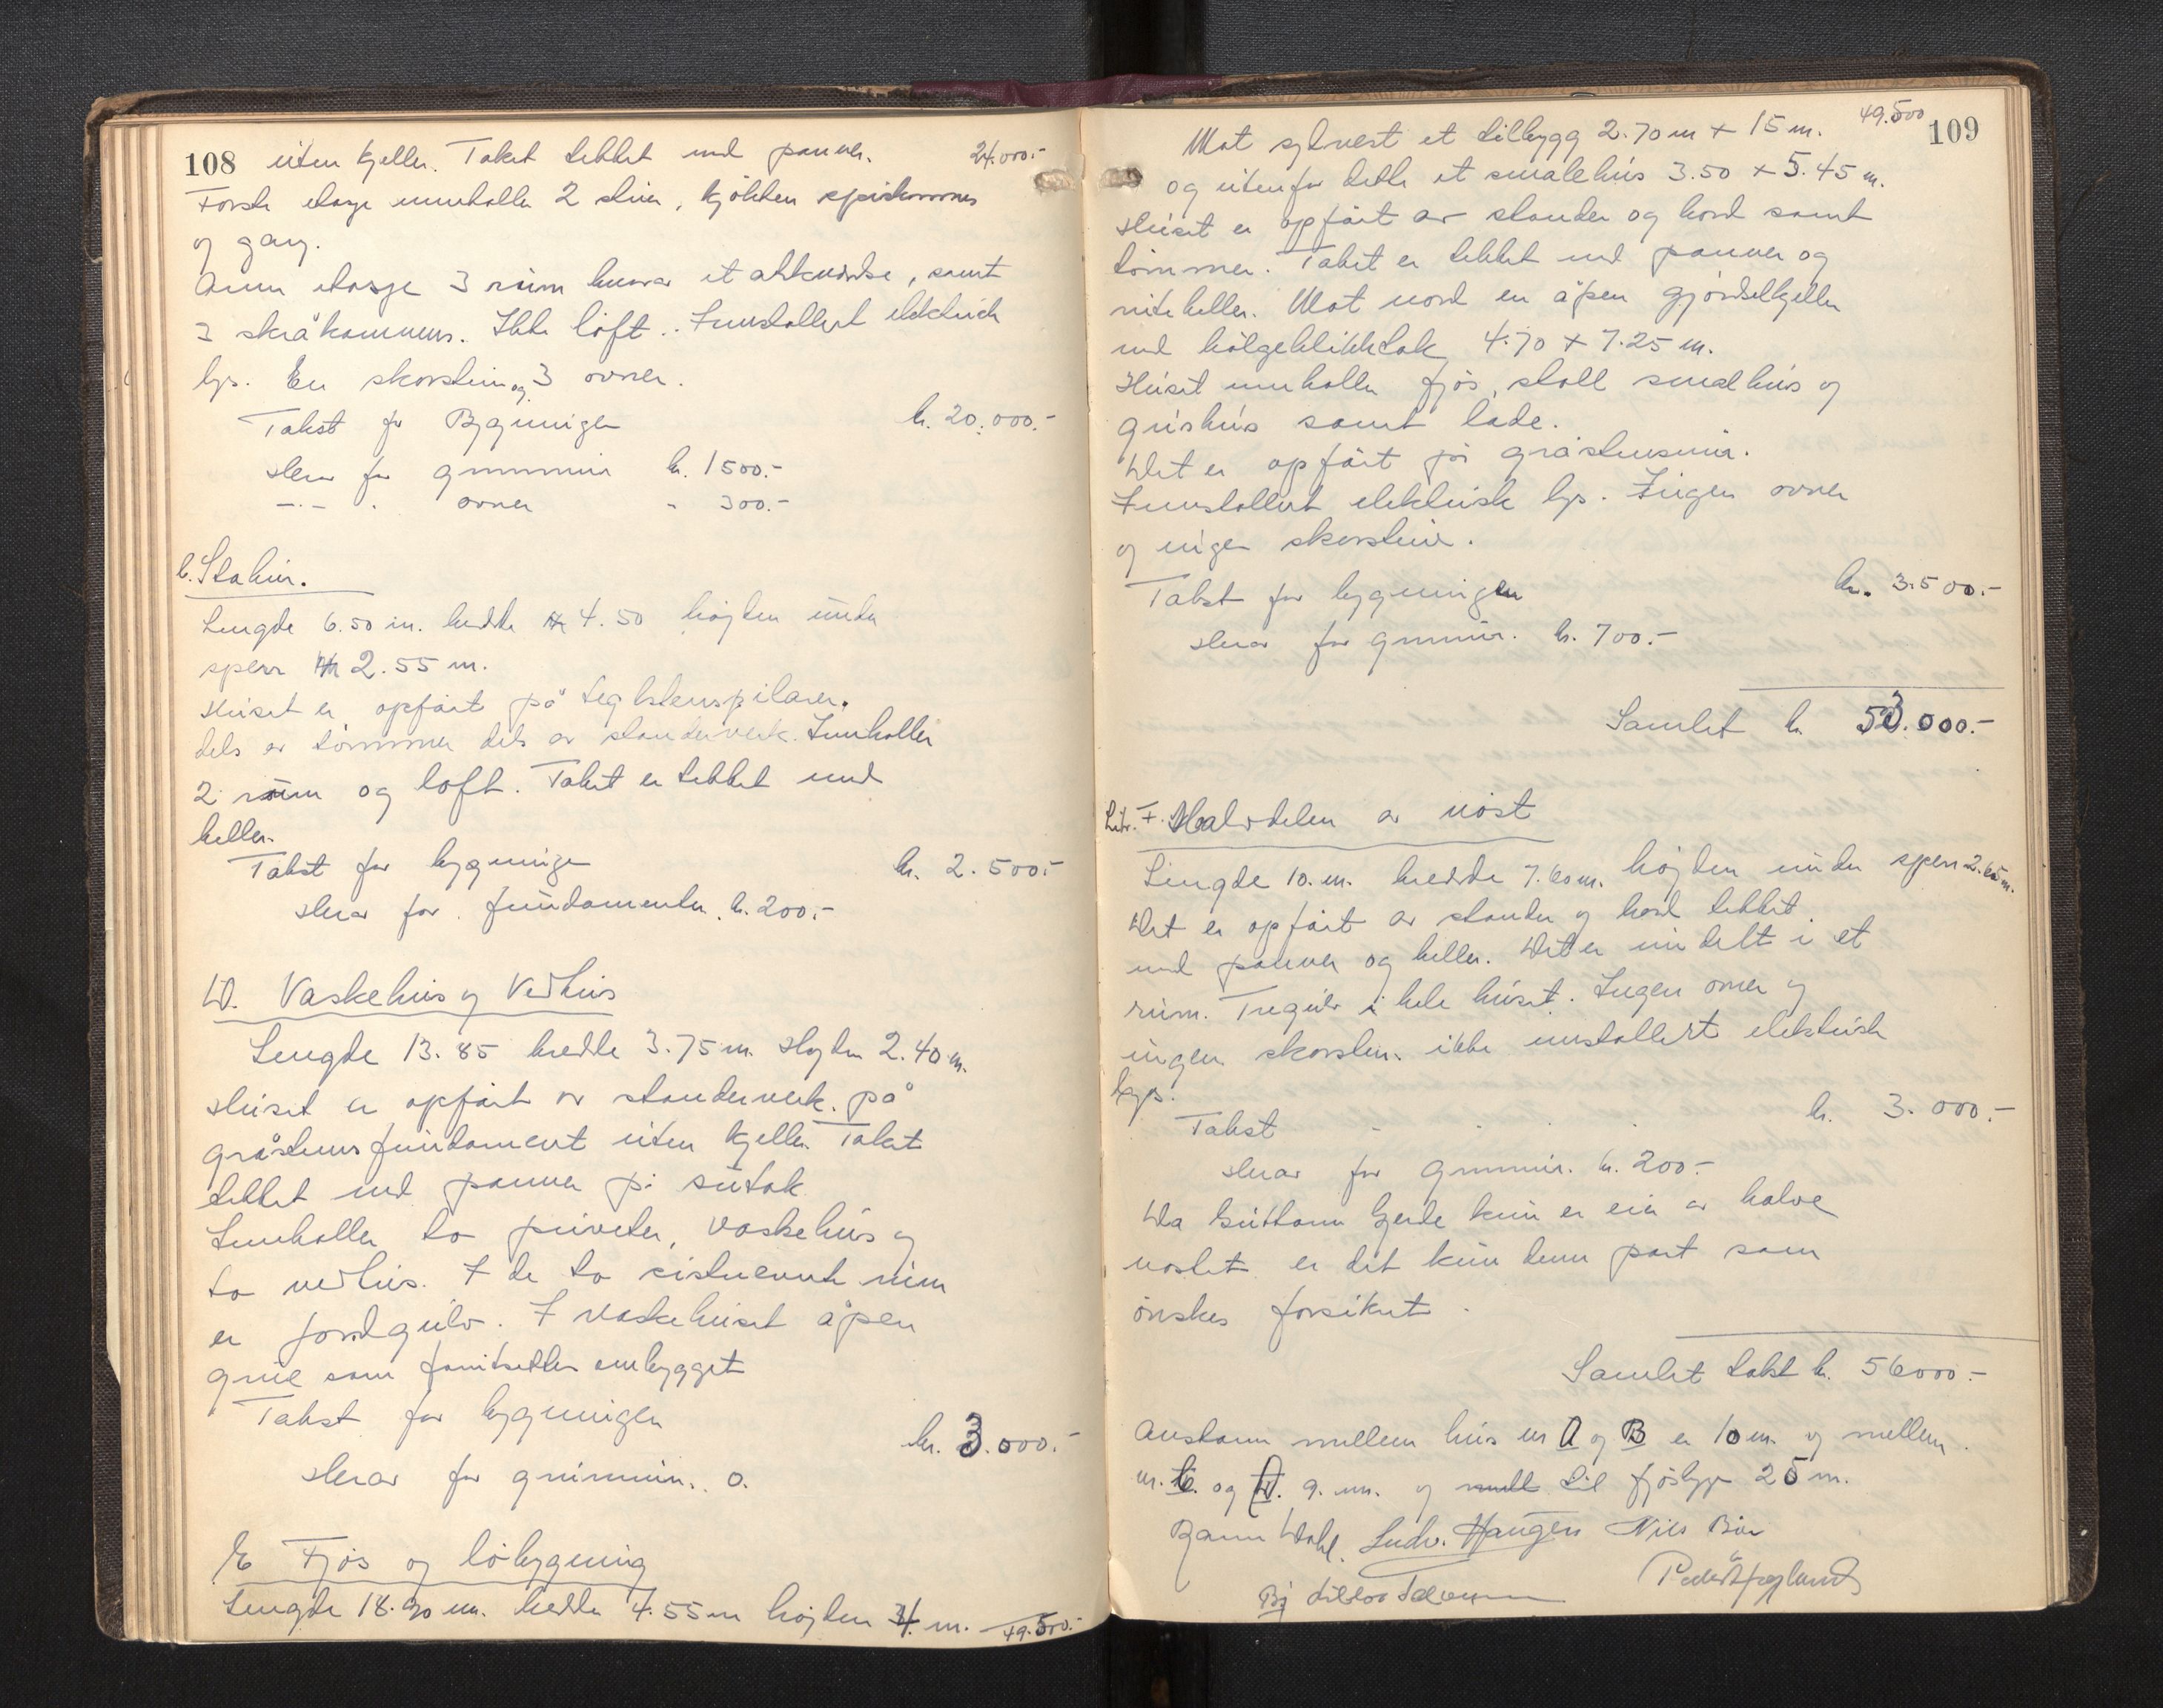 108 uten kjeller. Taket tekket med panner. 24.000.-
Første etasje inneholder 2 stuer, kjökken spiskammer
og gang.
Annen etasje 3 rúm hvorav et avkledde, samt
2 skråkammers. Ikke löft. Innstallert elektrisk
lys. En skorstein og 3 ovner.
Takst for Bygningen kr. 20.000.-
Herav for grunnmúr kr. 1500.-
-.- . ovner - 300.-
c. Stabúr.
Lengde 6.50 m. bredde 4.50 höjden únder
sperr 2.55 m.
Húset er opfört på teglstenspilarer.
dels av tömmer dels av standerverk. Innholder
2 rúm og loft. Taket er tekket med
heller.
Takst for bygningen kr. 2.500.-
Herav for fúndamenter kr. 200.-
D. Vaskehús og Vedhús
Lengde 13.85 bredde 3.75 m. Høyden 2.40 m.
Húset er opfört av standerverk. på
gråstensfúndament úten kjeller. Taket
tekket med panner på sútak
Innholder to priveter, vaskehús og
to vedhús. I de to sistnevnte rúm
er jordgúlv. I vaskehúset åpen
grúe som forútsettes ombygget
Takst for bygningen kr. 3.000.-
Herav for grúnnmúr. 0.
E Fjös og löbygning
Lengde 18.90 m. bredde 4.55 m höjden 4. m. 49.500.-
109
49.500
Mot sydvest et tilbygg 2.70 m + 15 m.
og útenfor dette et smalehús 3.50 + 5.45 m.
Húset er opfört av stander og bord samt
tömmer. Taket er tekket med panner og
heller. Mot nord en åpen gjödselkjeller
med bölgeblikktak 4.70 + 7.25 m.
Húset innholder fjös, stall smalhús og
grishús samt låde.
Det er opfört på gråstensmúr.
Innstallert elektrisk lys. Ingen ovner
og ingen skorstein.
Takst for bygningen kr. 3.500.-
Herav for grunnmúr. kr. 700.-
Samlet kr. 53.000.-
Litr. F. Halvdelen av nöst
Lengde 10. m. bredde 7.60 m. höjden únder sperr 2.65 m.
Det er opfört av stander og bord tekket
med panner og heller. Det er inndelt i et
rúm. Tregúlv i hele húset. Ingen ovner og
ingen skorsten. ikke innstallert elektrisk
lys.
Takst - . . kr. 3.000.-
Herav for grunnmúr. kr. 200.-
Da Gerde kún er eier av halve
nöstet er det kún denne part som
önskes forsikret.
Samlet takst kr. 56000.-
Avstann mellem hús nr A og B er 10 m. og mellem
nr. C. og D. 9. m. og til fjösbygn 25 m.
Dahl. Ludv. Haugen Nils
Peder